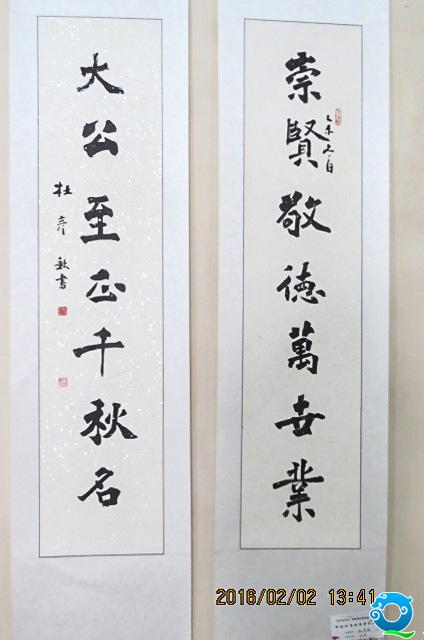 崇賢敬德萬世業
乙未冬日
大公至正千秋名
杜彦秋書
2016/02/02 13:41